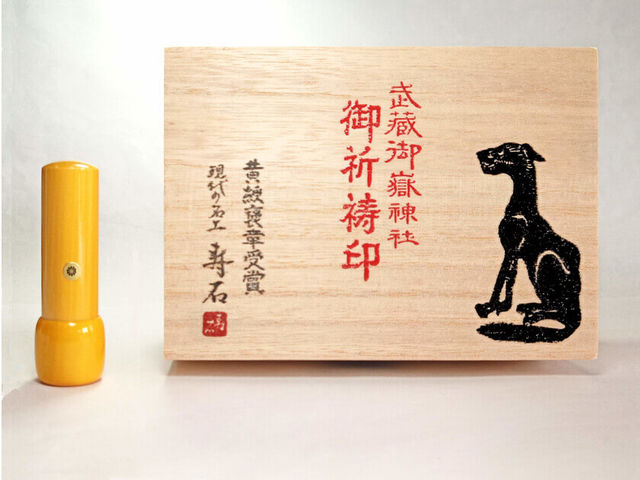 武蔵御嶽神社
御祈祷印
黄綬褒章受賞
現代の名工 寿石